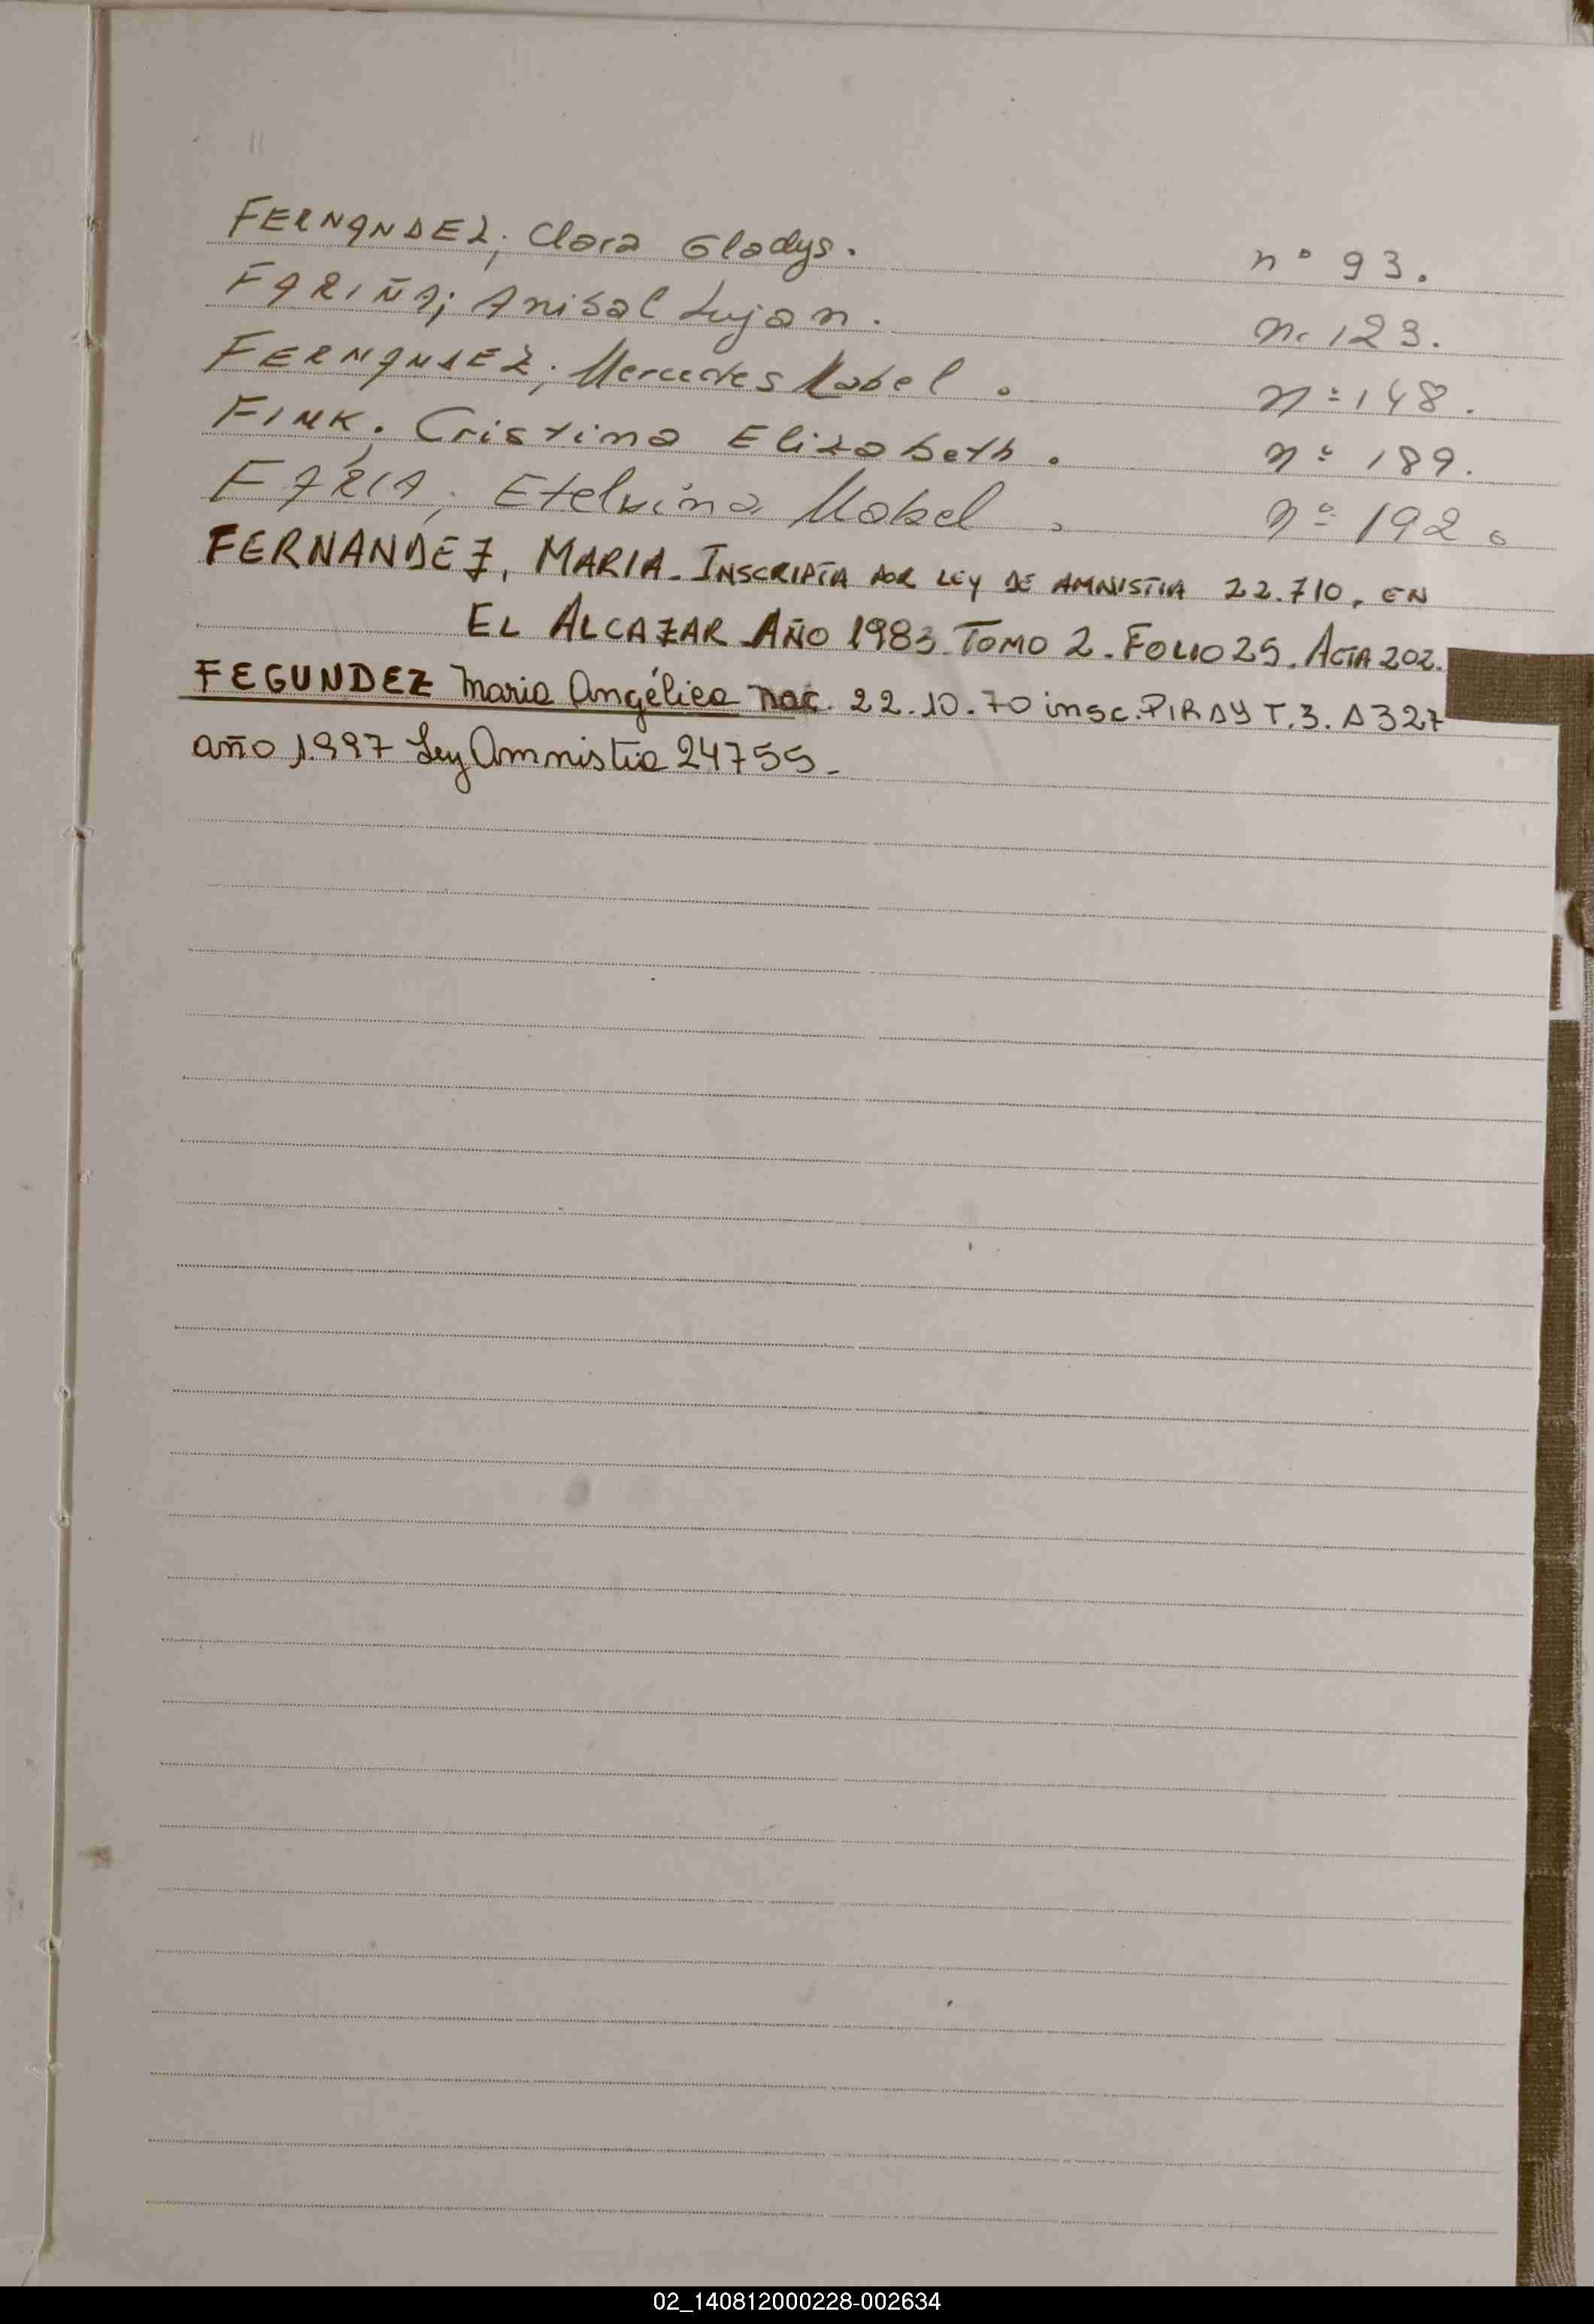 FERNANDEZ; Clara Gladys. nº 93.
FARIÑA; Anibal Lujan. nº 123.
FERNANDEZ; Mercedes Mabel. nº 148.
FINK; Cristina Elizabeth. nº 189.
FARIA; Etelvina Mabel. nº 192.
FERNANDEZ, MARIA - INSCRIPTA POR LEY DE AMNISTIA 22.710, EN
EL ALCAZAR AÑO 1983. TOMO 2. FOLIO 25. ACTA 202.
FEGUNDEZ Maria Angélica nac. 22.10.70 insc. PIRAY T.3. A 327
año 1.997 Ley Amnistia 24755.-
02_140812000228-002634